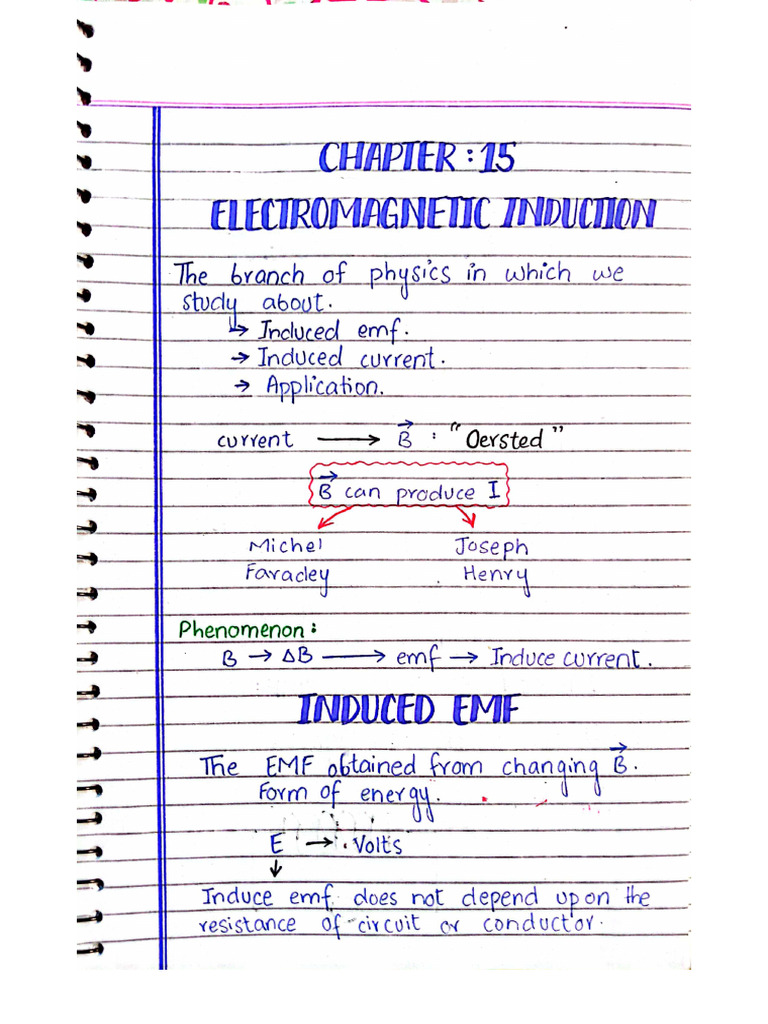 CHAPTER : 15
ELECTROMAGNETIC INDUCTION
The branch of physics in which we
study about.
↳ Induced emf.
→ Induced current.
→ Application.
current ⟶ B⃗ : "Oersted"
B⃗ can produce I
Michel Joseph
Faradey Henry
Phenomenon :
B → ΔB ⟶ emf → Induce current.
INDUCED EMF
The EMF obtained from changing B⃗.
Form of energy.
E → Volts
↓
Induce emf does not depend upon the
resistance of circuit or conductor.